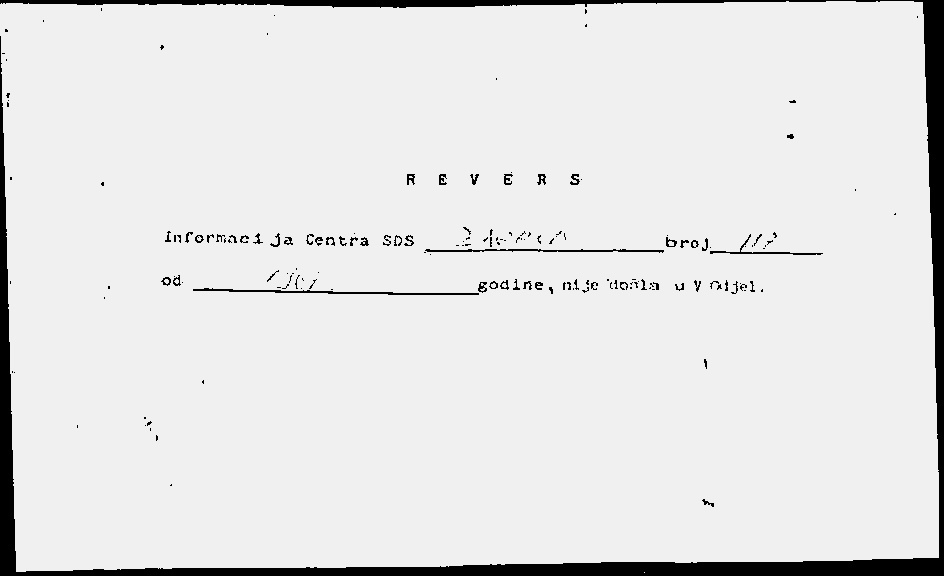 R E V E R S
Informacija Centra SDS broj
od godine, nije došla u V Odjel.